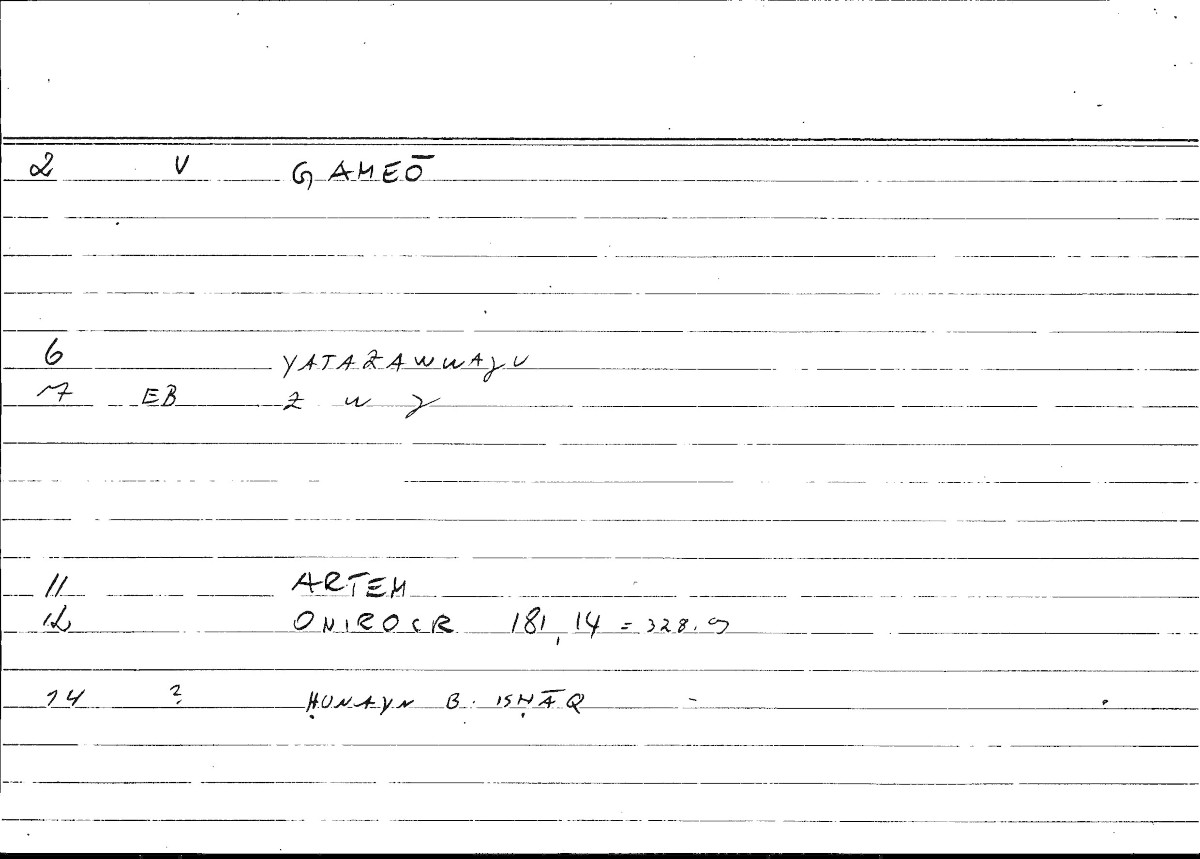 2 V GAMEŌ
6 YATAZAWWAJU
7 EB Z W J
11 ARTEM
12 ONIROCR 181, 14 = 328.9
14 ? ḤUNAYN B. ISḤĀQ -